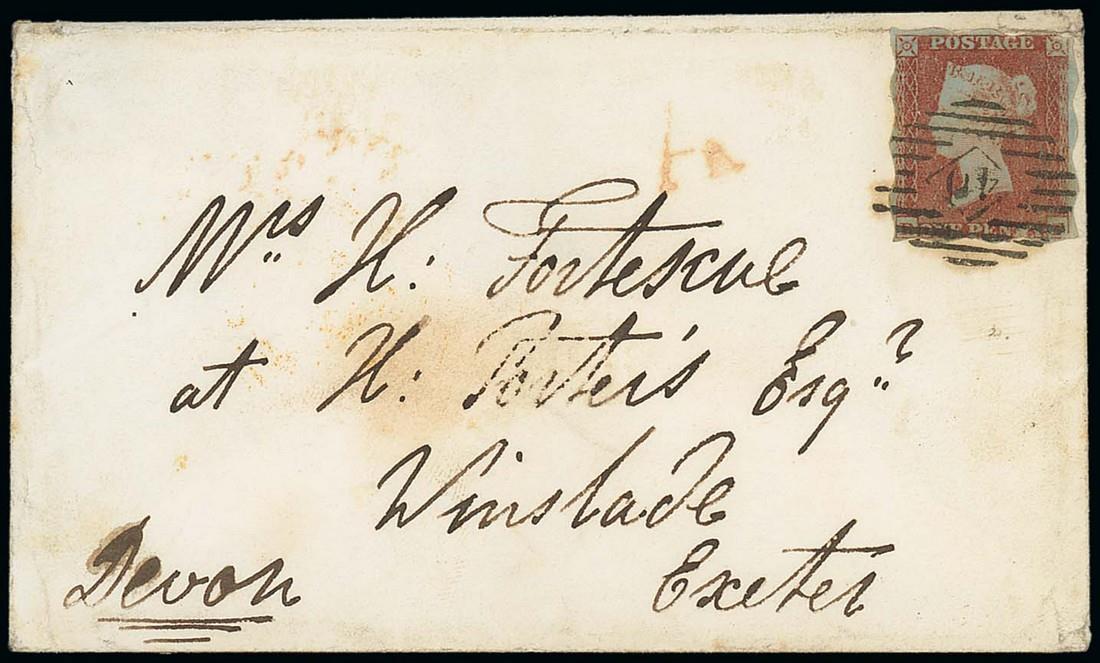 POSTAGE
Mrs H: Fortescue
at H: Porter's Esqr
Winslade
Exeter
Devon